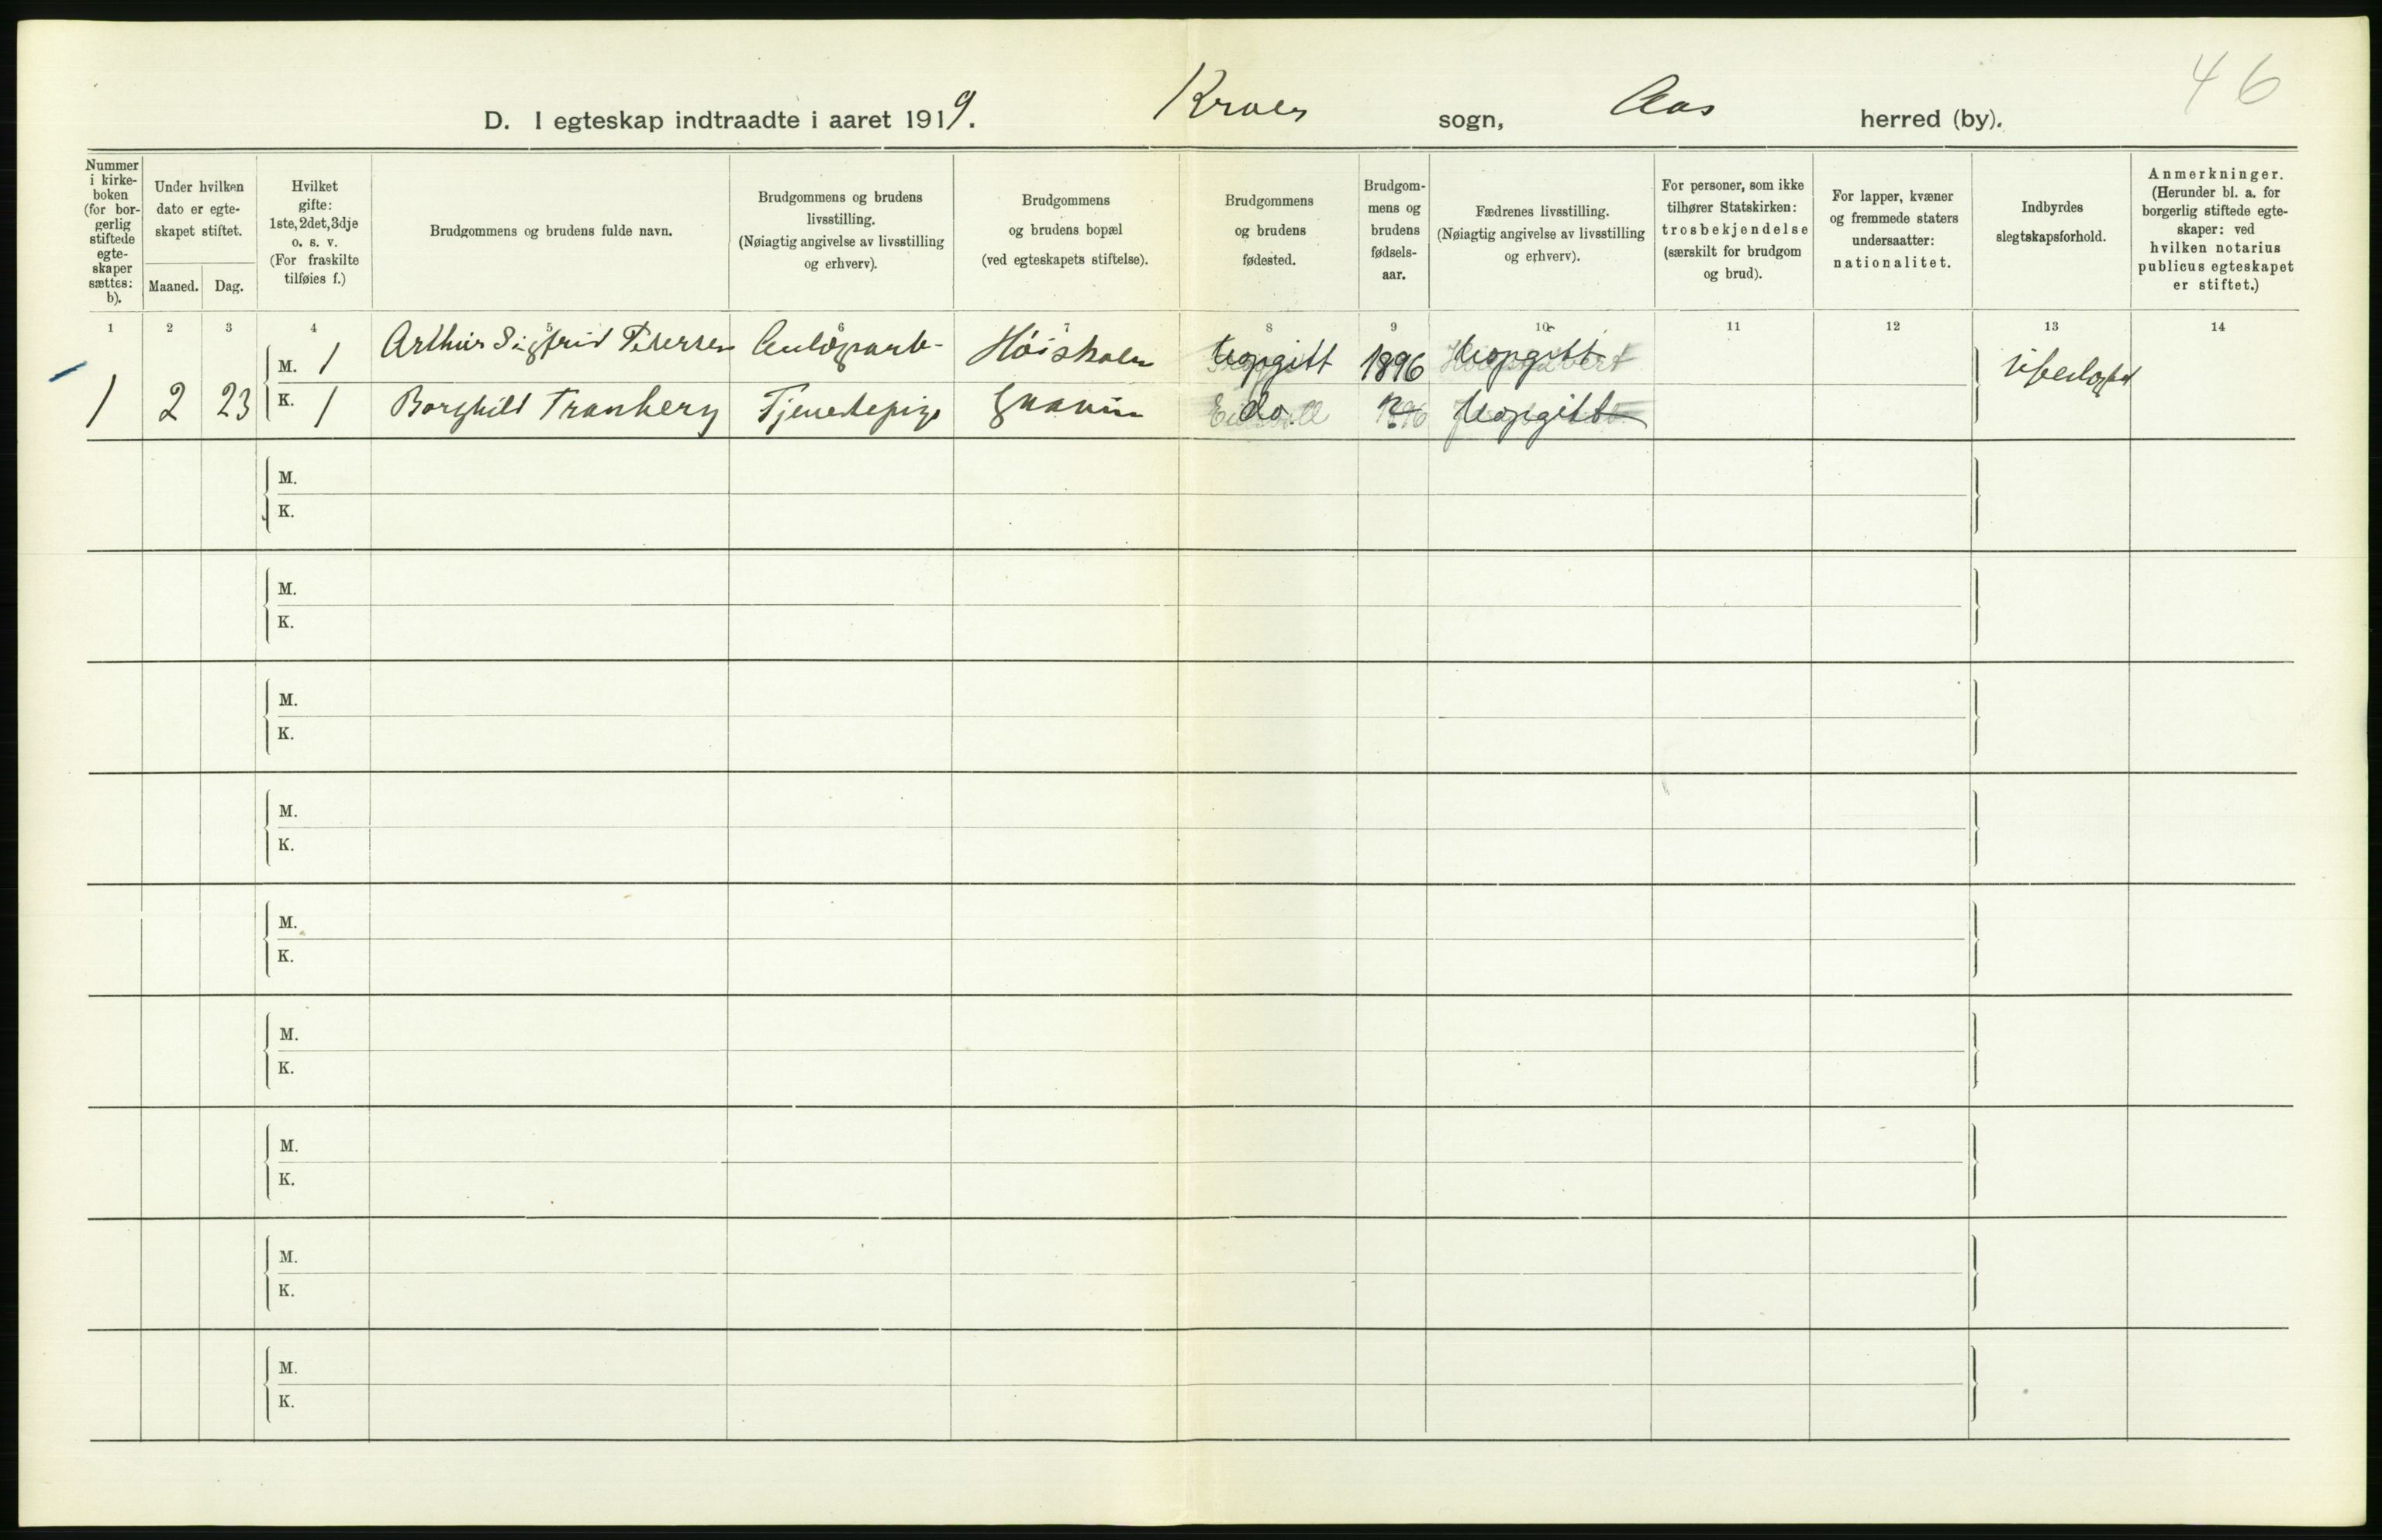 46
D. I egteskap indtraadte i aaret 1919. Kroer sogn, Aas herred (by).
Nummer i kirke-boken (for bor-gerlig stiftede egte-skaper sættes: b).
Under hvilken dato er egte-skapet stiftet.
Maaned. Dag.
Hvilket gifte: 1ste, 2det, 3dje o. s. v. (For fraskilte tilføies f.)
Brudgommens og brudens fulde navn.
Brudgommens og brudens livsstilling. (Nøiagtig angivelse av livsstilling og erhverv).
Brudgommens og brudens bopæl (ved egteskapets stiftelse).
Brudgommens og brudens fødested.
Brudgom-mens og brudens fødsels-aar.
Fædrenes livsstilling. (Nøiagtig angivelse av livsstilling og erhverv).
For personer, som ikke tilhører Statskirken: trosbekjendelse (særskilt for brudgom og brud).
For lapper, kvæner og fremmede staters undersaatter: nationalitet.
Indbyrdes slegtskapsforhold.
Anmerkninger. (Herunder bl. a. for borgerlig stiftede egte-skaper: ved hvilken notarius publicus egteskapet er stiftet.)
1 2 3 4 5 6 7 8 9 10 11 12 13 14
M. 1 Arthur Sigfrid Petersen Anlægsarb- Høiskolen Uopgitt 1896 Uopgitt Ubeslægtet
1 2 23 K. 1 Borghild Tranberg Tjenestepige do. Uopgitt
M.
K.
M.
K.
M.
K.
M.
K.
M.
K.
M.
K.
M.
K.
M.
K.
M.
K.